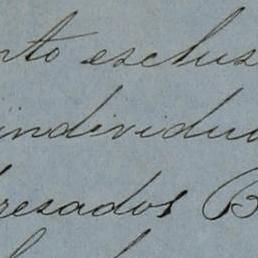 nto esclus
individu
resados B